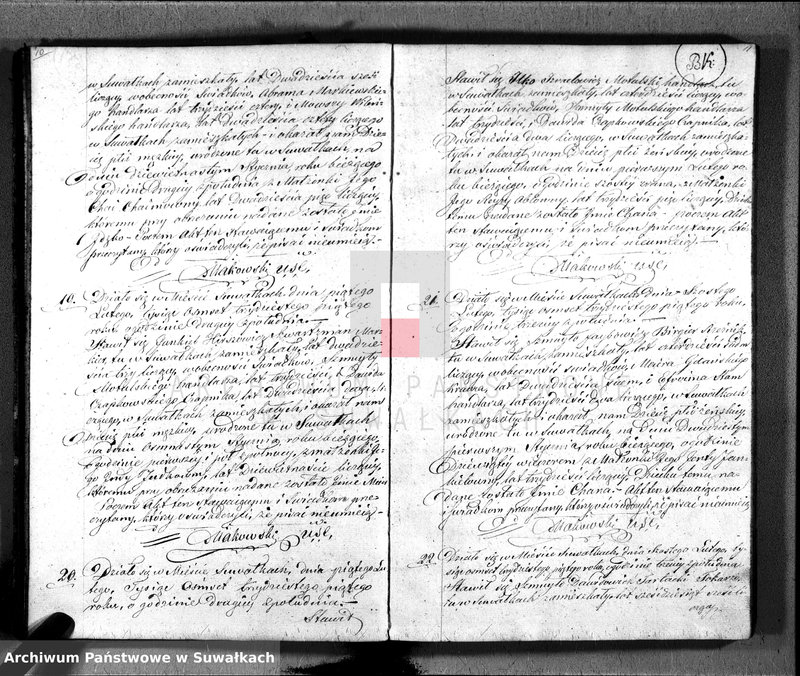 10
w Suwałkach zamieszkały, lat Dwadzieścia sześć
liczący, w obecności Świadków, Abrama
handlarza lat trzydzieści cztery, i
handlarza, lat Dwadzieścia cztery liczącego
w Suwałkach zamieszkałych - i okazał nam Dziec
ię płci męzkiej, urodzone tu w Suwałkach, na
dniu dziewiętnastym Stycznia, roku bieżącego
o godzinie drugiey z południa z Małżonki Jego
Chai Chaimowny, lat Dwadzieścia pięć liczącey,
któremu przy obrzezaniu nadane zostało imie
Jcko - Poczem Akt ten Stawaiącemu i świadkom
przeczytany, którzy oświadczyli, że pisać nieumieią.-
Makowski USC.
19. Działo się w Mieście Suwałkach, dnia piątego
Lutego, tysiąc Ośmset trzydziestego piątego
roku, o godzinie drugiey z południa.-
Stawił się Jankiel Herszkowicz Szwartzman
tu w Suwałkach zamieszkały, lat dwadzie-
ścia trzy liczący, w obecności Świadków, Szmuyły
Motulskiego handlarza, lat trzydzieści, i Dawida
Czapkowskiego Czapnika, lat Dwadzieścia dwa li-
czącego, w Suwałkach zamieszkałych, i okazał nam
Dziecię płci męzkiej, urodzone tu w Suwałkach
na dniu Ośmnastym Stycznia, roku bieżącego,
o godzinie pierwszey i pół z północy, z małżonki Je-
go lat Dziewiętnaście liczącey,
któremu przy obrzezaniu nadane zostało imie
Poczem Akt ten Stawaiącemu i Świadkom prze-
czytany, którzy oświadczyli, że pisać nieumieią.-
Makowski USC.
20. Działo się w Mieście Suwałkach, dnia piątego Lu-
tego, Tysiąc Ośmset trzydziestego piątego
roku, o godzinie drugiey z południa.-
Stawił
11
BK:
Stawił się Jcko Izraelowicz Motulski handlarz tu
w Suwałkach zamieszkały, lat czterdzieści liczący, w o-
becności Świadków, Szmuyły Motulskiego handlarza
lat trzydzieści, i Dawida Czapkowskiego Czapnika, lat
Dwadzieścia dwa liczącego, w Suwałkach zamieszka-
łych - i okazał nam Dziecię płci żeńskiey, urodzone
tu w Suwałkach na dniu pierwszym Lutego ro-
ku bieżącego, o godzinie szóstey z rana, z Małżonki
Jego lat trzydzieści pięć liczącey, Dziec-
kemu nadane zostało Imie Chana - poczem Akt
ten Stawaiącemu i Świadkom przeczytany, któ-
rzy oświadczyli, że pisać nieumieią.-
Makowski USC.
21. Działo się w Mieście Suwałkach, Dnia szóstego
Lutego, tysiąc Ośmset trzydziestego piątego roku,
o godzinie trzeciey z południa.-
Stawił się Szmuyło
tu w Suwałkach zamieszkały, lat czterdzieści
liczący, w obecności świadków, Meiera Gdańskiego
lat Dwadzieścia i
handlarza, lat trzydzieści dwa liczącego, w Suwałkach
zamieszkałych, i okazał nam Dziecię płci żeńskiey,
urodzone tu w Suwałkach, na Dniu Dwudziestym
pierwszym Stycznia, roku bieżącego, o godzinie
Dziewiątey wieczorem, z Małżonki Jego
lat trzydzieści liczącey, Dziecku temu na-
dane zostało Imie Chana - Akt ten Stawaiącemu
i świadkom przeczytany, którzy oświadczyli, że pisać nieumieią
Makowski USC.
22. Działo się w Mieście Suwałkach, dnia szóstego Lutego, ty-
siąc ośmset trzydziestego piątego roku, o godzinie trzeciey z południa
Stawił się Szmuyło Dawidowicz Tokarz
tu w Suwałkach zamieszkały, lat sześćdziesiąt sześć li-
czący,
Archiwum Państwowe w Suwałkach